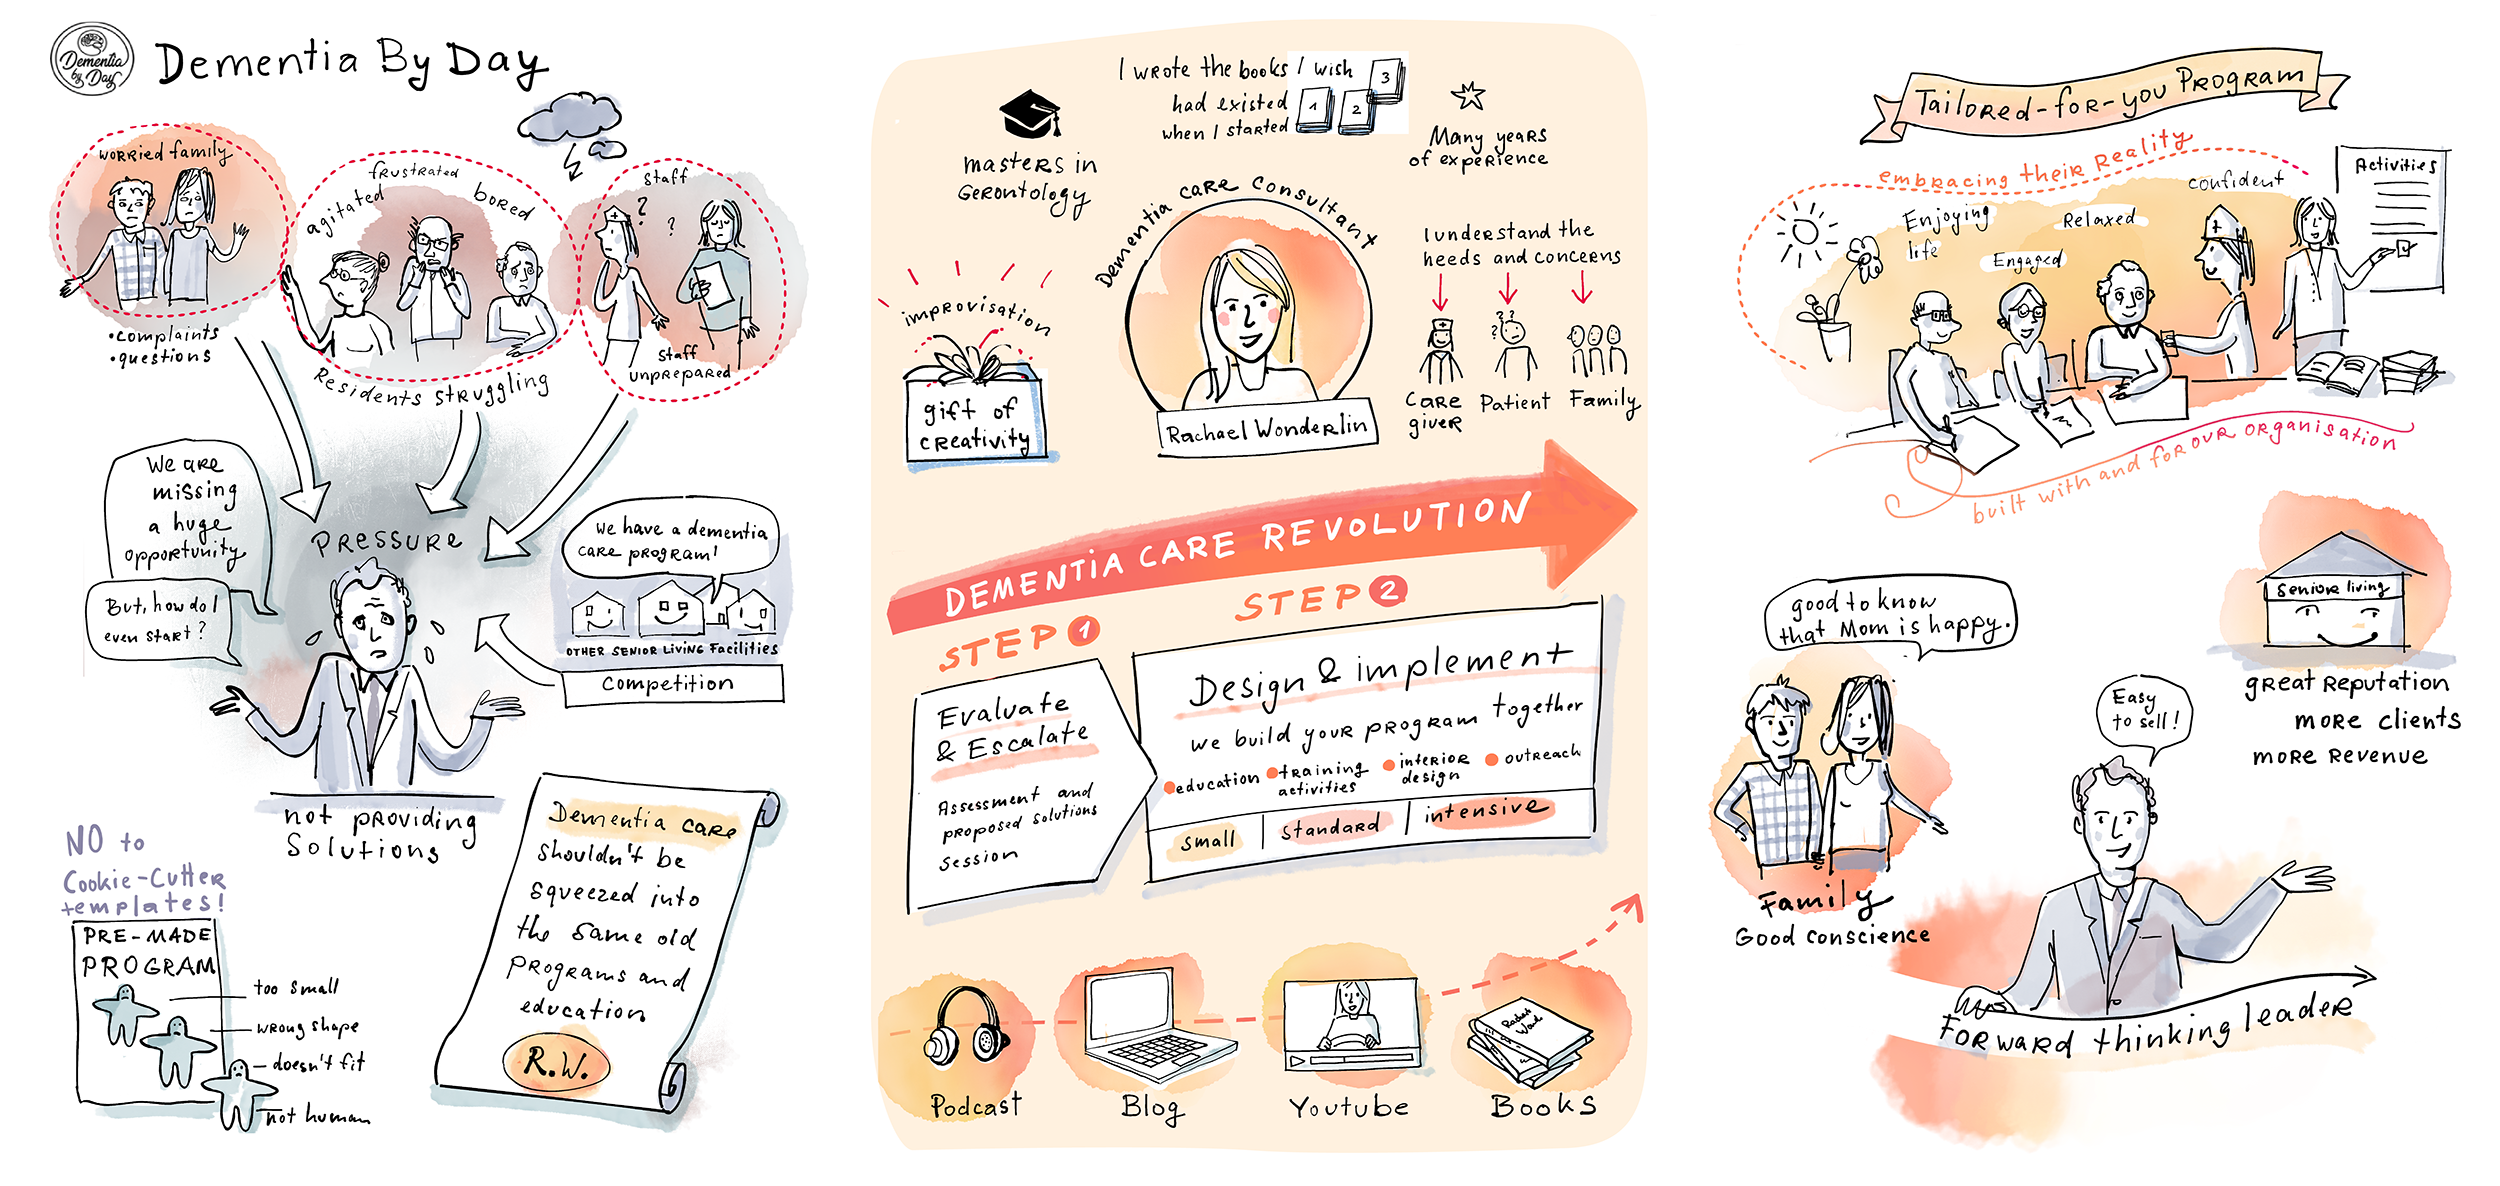 Dementia
by Day
Dementia By Day
worried family
•complaints
•questions
frustrated
agitated
bored
Residents struggling
staff
?
?
staff
unprepared
We are
missing
a huge
opportunity
But, how do I
even start?
Pressure
we have a dementia
care program!
Other senior living facilities
competition
not providing
solutions
NO to
Cookie-Cutter
templates!
PRE-MADE
PROGRAM
too small
wrong shape
doesn't fit
not human
Dementia care
shouldn't be
squeezed into
the same old
programs and
education
R.W.
masters in
Gerontology
I wrote the books I wish
had existed
when I started
1
2
3
Many years
of experience
improvisation
gift of
creativity
Dementia care consultant
Rachael Wonderlin
I understand the
needs and concerns
? ?
?
Care
giver
Patient
Family
DEMENTIA CARE REVOLUTION
STEP 1
Evaluate
& Escalate
Assessment and
proposed solutions
session
STEP 2
Design & implement
we build your program together
education
training
activities
interior
design
outreach
small
standard
intensive
Podcast
Blog
Youtube
Books
Tailored-for-you Program
embracing their reality
Activities
confident
Enjoying
life
Relaxed
Engaged
built with and for our organisation
good to know
that Mom is happy.
Family
Good conscience
senior living
great reputation
more clients
more revenue
Easy
to sell!
Forward thinking leader